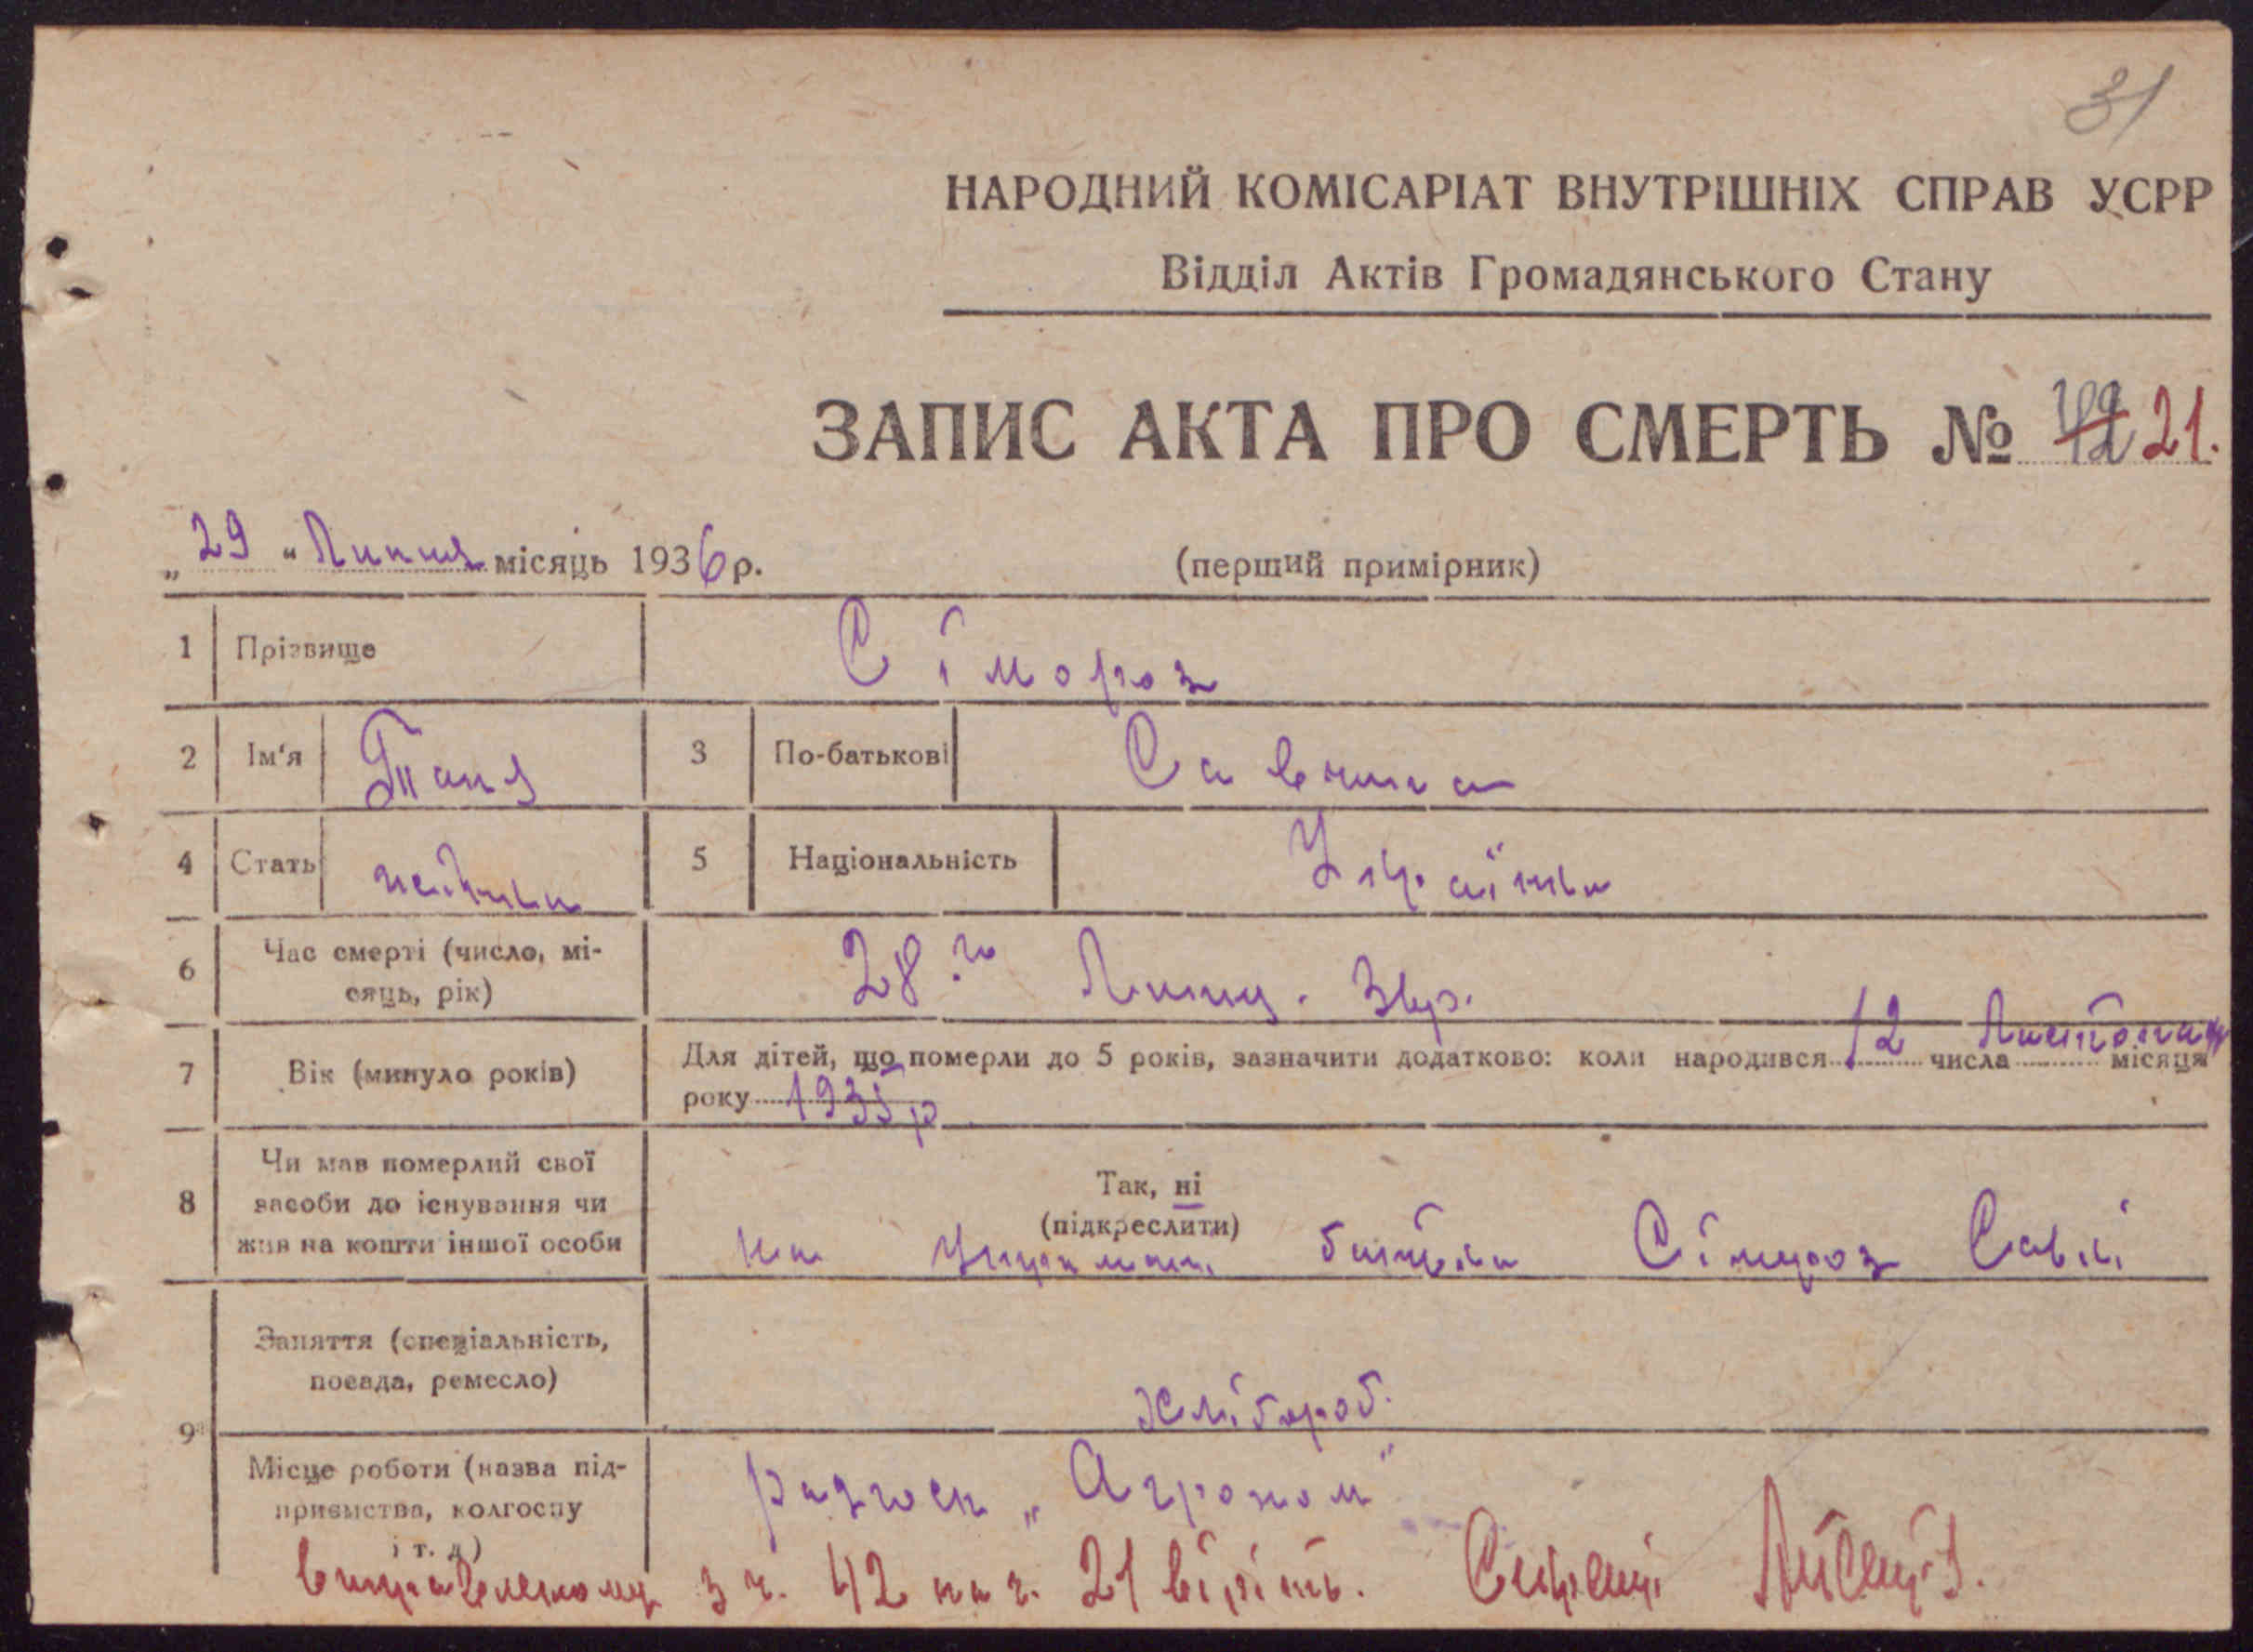 31
НАРОДНИЙ КОМІСАРІАТ ВНУТРІШНІХ СПРАВ УСРР
Відділ Актів Громадянського Стану
ЗАПИС АКТА ПРО СМЕРТЬ № 42 21.
„29“ Липня місяць 1936 р. (перший примірник)
1 Прізвище Сімороз
2 Ім'я Таня 3 По-батькові Савична
4 Стать 5 Національність Українка
6 Час смерті (число, мі-
сяць, рік) 28го Липц. 36р.
7 Вік (минуло років) Для дітей, що померли до 5 років, зазначити додатково: коли народився 12 числа Листопад місяця
року 1935р
8 Чи мав померлий свої
засоби до існування чи
жив на кошти іншої особи
Так, ні
(підкреслити)
на батька Сімороз Савки
9 Заняття (спеціальність,
посада, ремесло) хлібороб.
Місце роботи (назва під-
приємства, колгоспу
і т. д) радгосп „Агроном"
з ч. 42 на ч. 21 вірить.